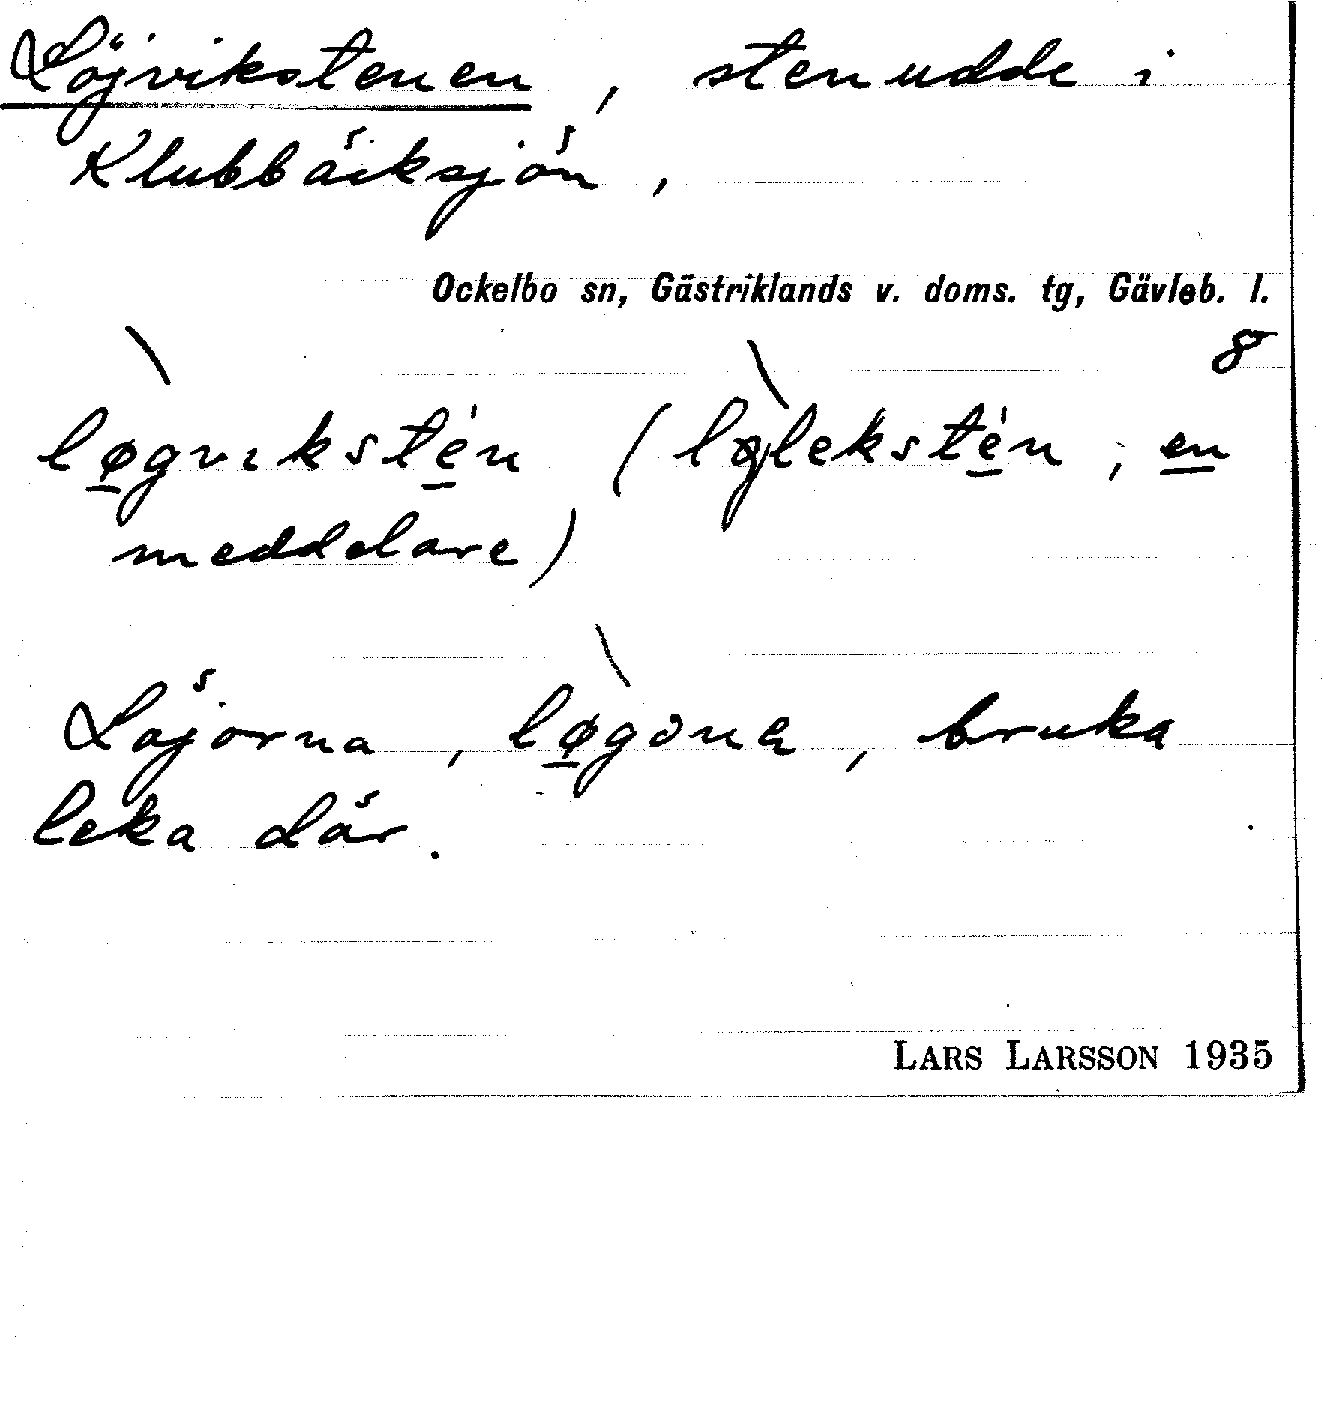 Löjvikstenen, stenudde i
Klubbäcksjön,
Ockelbo sn, Gästriklands v. doms. tg, Gävleb. l.
8
lø̱gvıksté̱n (lø̱gleksté̱n, en
meddelare)
Löjorna, lø̱gơna, bruka
leka där.
LARS LARSSON 1935